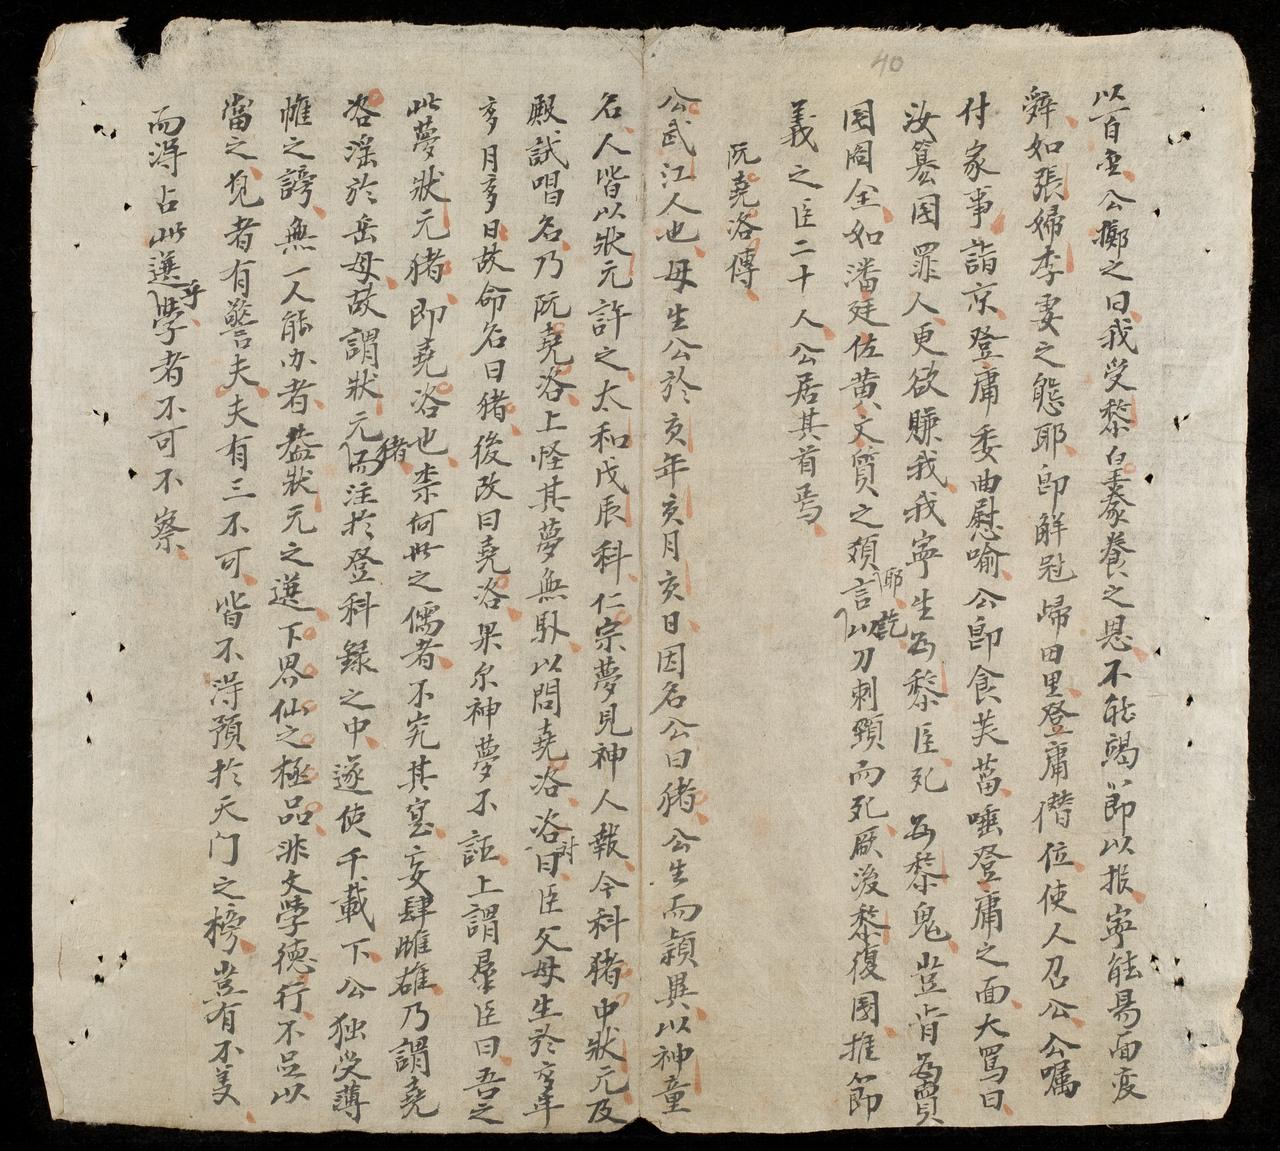 以百壺公擲之曰我受黎皇豢養之恩不能竭節以報寧能易面変
辭如張婦李妻之態耶即解冠歸田里登庸僭位使人召公公囑
付家事詣京登庸委曲慰喻公即食芙蒥唾登庸之面大罵曰
汝篡國罪人更欲賺我我寧生為黎臣死為黎鬼豈肯為賣
國啚全如潘廷佐黄文質之類耶言乾以刀刺頸而死厥後黎復國推節
義之臣二十人公居其首焉
阮堯洛傳
公武江人也母生公於亥年亥月亥日因名公曰猪公生而穎異以神童
名人皆以狀元許之太和戊辰科仁宗夢見神人報今科猪中狀元及
殿試唱名乃阮堯洛上怪其夢無馭以問堯洛洛對曰臣父母生於亥年
亥月亥日故命名曰猪後改曰堯洛果尔神夢不誣上謂羣臣曰吾之
此夢狀元猪即堯洛也柰何世之儒者不究其寔妄肆雌雄乃謂堯
洛滛於岳母故謂狀元猪而注於登科録之中遂使千載下公独受薄
帷之謗無一人能办者盖狀元之選下界仙之極品非文學德行不足以
當之覌者有警夫夫有三不可皆不得預於天门之榜豈有不美
而得占此選乎學者不可不察